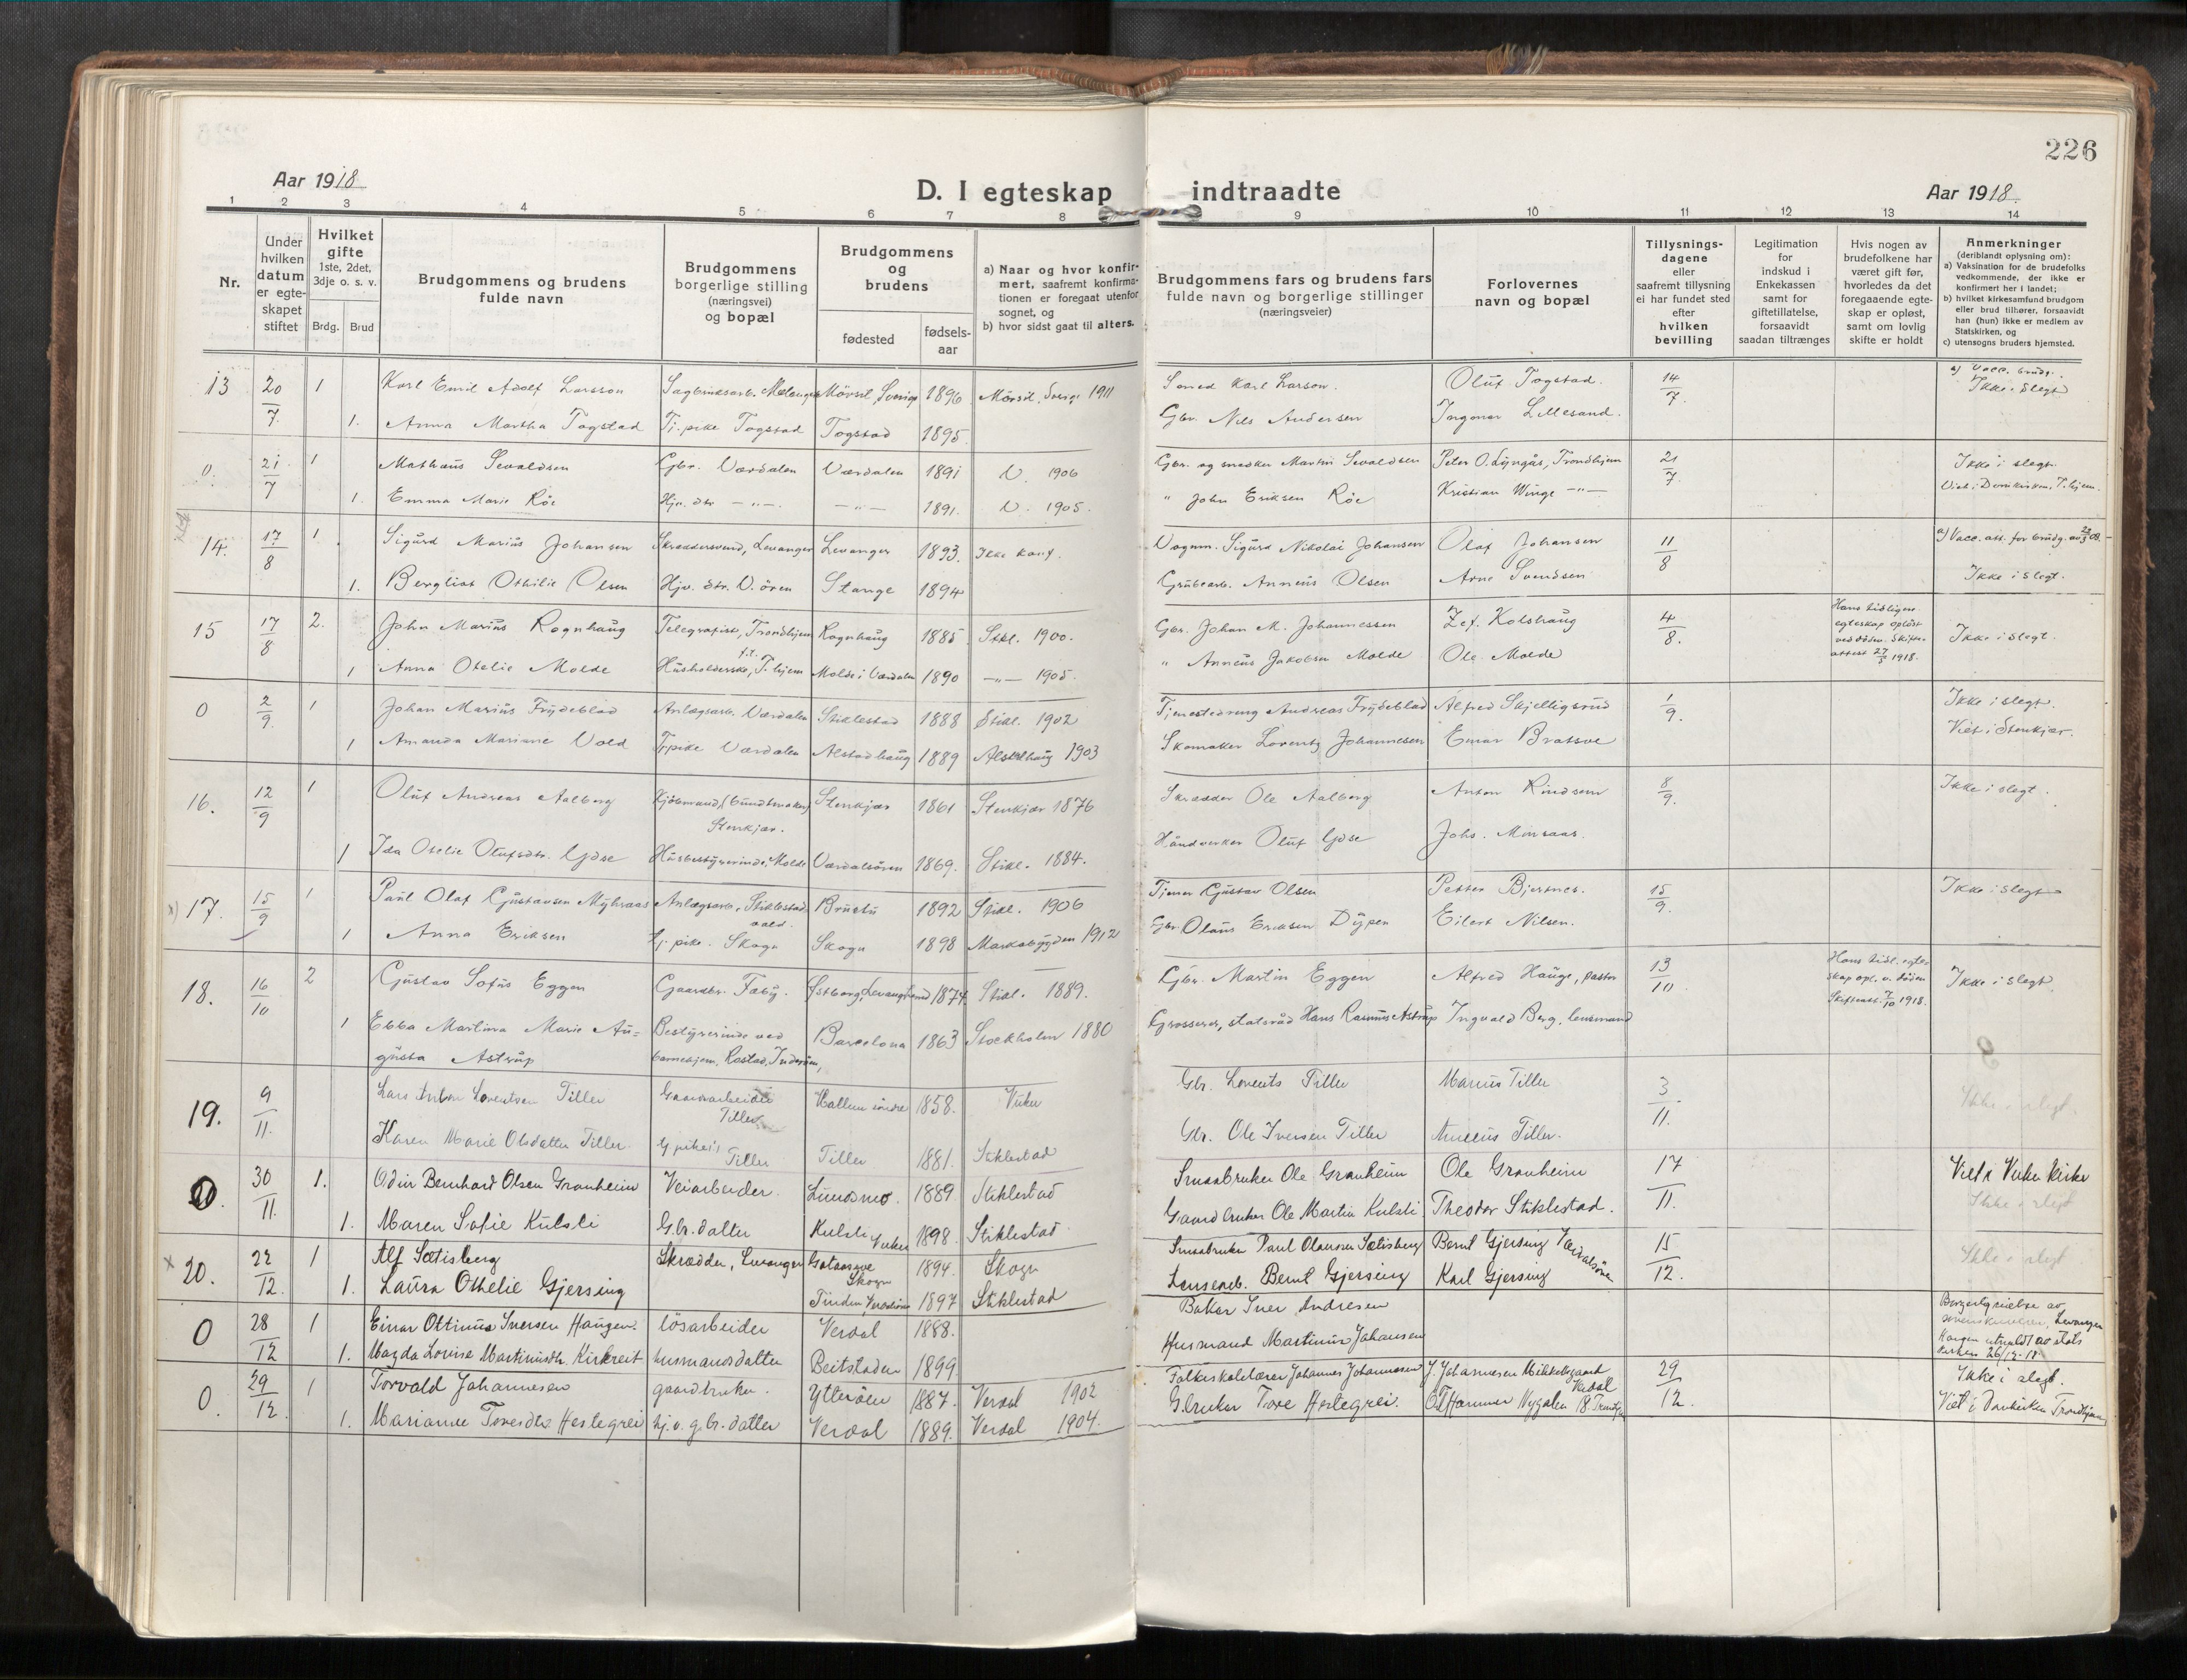 226
Aar 1918
D. I egteskap indtraadte
Aar 1918.
1 2 3 4 5 6 7 8 9 10 11 12 13 14
Nr.
Under hvilken datum er egteskapet stiftet
Hvilket gifte 1ste, 2det, 3dje o. s. v.
Brdg. Brud
Brudgommens og brudens fulde navn
Brudgommens borgerlige stilling (næringsvei) og bopæl
Brudgommens og brudens
fødested
fødsels-aar
a) Naar og hvor konfirmert, saafremt konfirmationen er foregaat utenfor sognet, og
b) hvor sidst gaat til alters.
Brudgommens fars og brudens fars fulde navn og borgerlige stillinger (næringsveier)
Forlovernes navn og bopæl
Tillysningsdagene eller saafremt tillysning ei har fundet sted efter hvilken bevilling
Legitimation for indskud i Enkekassen samt for giftetillatelse, forsaavidt saadan tiltrænges
Hvis nogen av brudefolkene har været gift før, hvorledes da det foregaaende egteskap er opløst, samt om lovlig skifte er holdt
Anmerkninger (deriblandt oplysning om):
a) Vaksination for de brudefolks vedkommende, der ikke er konfirmert her i landet;
b) hvilket kirkesamfund brudgom eller brud tilhører, forsaavidt han (hun) ikke er medlem av Statskirken, og
c) utensogns bruders hjemsted.
13 20/7 1 Karl Emil Adolf Larsson Sagbruksarb. Mörsil, Sverige 1896 Mörsil, Sverige 1911 Smed Karl Larson. Oluf Togstad. 14/7. a) Vacc. brudg. Ikke i slegt
1. Anna Martha Togstad Tj. pike Togstad Togstad 1895. Gbr. Nils Andersen Ingvar Lillesand.
0. 21/7 1 Mathäus Sevaldsen Gbr. Værdalen Værdalen 1891 V. 1906 Gbr. og snedker Martin Sevaldsen Peter O. Lyngås, Trondhjem 21/7. Ikke i slegt.
1. Emma Marie Röe Hjv. dtr —"— —"— 1891. V. 1905. " John Eriksen Röe Kristian Winge —"— Viet i Domkirken, T.hjem.
14. 17/8 1 Sigurd Marius Johansen Skræddersvend, Levanger Levanger 1893. Ikke konf. Vognm. Sigurd Nikolai Johansen Olaf Johansen 11/8 a) Vacc. att. for brudg.
1. Bergliot Othilie Olsen Hjv. dtr. V. ören Stange 1894 Grubearb. Anneus Olsen Arne Svendsen Ikke i slegt.
15 17/8 2. John Marius Rognhaug Telegrafist, Trondhjem Rognhaug 1885 Stkl. 1900. Gbr. Johan M. Johannessen Zef. Kolshaug 4/8. Hans tidligere egteskap oplöst ved döden. Skifteattest 27/5 1918. Ikke i slegt.
1 Anna Otelie Molde Husholderske, f.t. T. hjem Molde i Værdalen 1890 —"— 1905. " Anneus Jakobsen Molde Ole Molde
0 2/9 1 Johan Marius Frydeblad Anlægsarb. Værdalen Stiklestad 1888 Stikl. 1902 Tjenestedreng Andreas Frydeblad Alfred Skjelligsrud 1/9. Ikke i slegt.
1 Amanda Mariane Vold Tj. pike Værdalen Alstadhaug 1889 Alstadhaug 1903 Skomaker Lorentz Johannesen Einar Bratsve Viet i Stenkjær.
16. 12/9 1 Oluf Andreas Aalberg Kjöbmand, (bundtmaker) Stenkjær. Stenkjær 1861 Stenkjær 1876 Skrædder Ole Aalberg Anton Rindsem 8/9. Ikke i slegt.
1 Ida Otelie Olufsdtr. Gjöse Husbestyrerinde, Molde Værdalsören 1869. Stikl. 1884. Håndverker Oluf Gjöse Johs. Monsaas.
x) 17. 15/9 1 Paul Olaf Gustavsen Myhraas Anlægsarb., Stiklestad Bruetu 1892 Stikl. 1906 Tjener Gustav Olsen Petter Bjertnes. 15/9. Ikke i slegt
1 Anna Eriksen Tj. pike. Skogn Skogn 1898 Markabygden 1912 Gbr. Olaus Eriksen Dypen Eilert Nilsen.
18. 16/10 2 Gustav Sofus Eggen Gaardbr. Faby. Østborg, Levanger 1874. Stikl. 1889. Gbr. Martin Eggen Alfred Hauge, pastor 13/10 Hans tidl. egteskap opl. v. döden Skifteatt. 7/10 1918. Ikke i slegt.
1 Ebba Martina Marie Augusta Astrup Bestyrerinde ved barnehjem, Rostad, Inderöen, Barcelona 1863 Stockholm 1880 Grosserer, statsråd Hans Rasmus Astrup Ingvald Berg, lensmand
19. 9/11. Lars Anton Lorentsen Tiller Gaardarbeider Tiller Hallem indre 1858. Vuku Gbr. Lorents Tiller Marius Tiller 3/11. Ikke i slegt.
Karen Marie Olsdatter Tiller. Tiller Tiller 1881. Stiklestad Gbr. Ole Iversen Tiller Anneus Tiller.
0. 30/11. 1. Odin Bernhard Olsen Granheim Veiarbeider. Lundmo. 1889. Stiklestad Smaabruker Ole Granheim Ole Granheim 17/11. Viet i Vuku kirke
1. Maren Sofie Kulsli G.br. datter Kulsli Vuku 1898. Stiklestad Gaardbruker Ole Martin Kulsli Theodor Stiklestad. Ikke i slegt
x 20. 22/12. 1 Alf Sætisberg Skrædder, Levanger Skogn 1894. Skogn Smaabruker Paul Olausen Sætisberg Bernt Gjersing Værdalsören 15/12. Ikke i slegt
1. Laura Othelie Gjersing Tinden, Værdalsören 1897 Stiklestad Lensearb. Bernt Gjersing Karl Gjersing
0 28/12 1 Einar Ottinus Iversen Haugen. lösarbeider Verdal 1888. Baker Iver Andresen Levanger
1. Magda Lovise Martinusdtr. Kirkreit husmandsdatter Beitstaden 1899. Husmand Martinus Johansen Haugen utmeldt av stats kirken 26/12-18.
0. 29/12. 1 Torvald Johannesen gaardbruker. Ytteröen 1887. Verdal 1902 Folkeskolelærer Johannes Johannesen J. Johannesen Mikkelsgaard Verdal 29/12. Ikke i slegt.
1. Marianne Toresdtr Hestegrei hj.v. g.br. datter Verdal 1889. Verdal 1904. G.bruker Tore Hestegrei. O. Hammer Nygaten 18 Trondhjem Viet i Domkirken Trondhjem